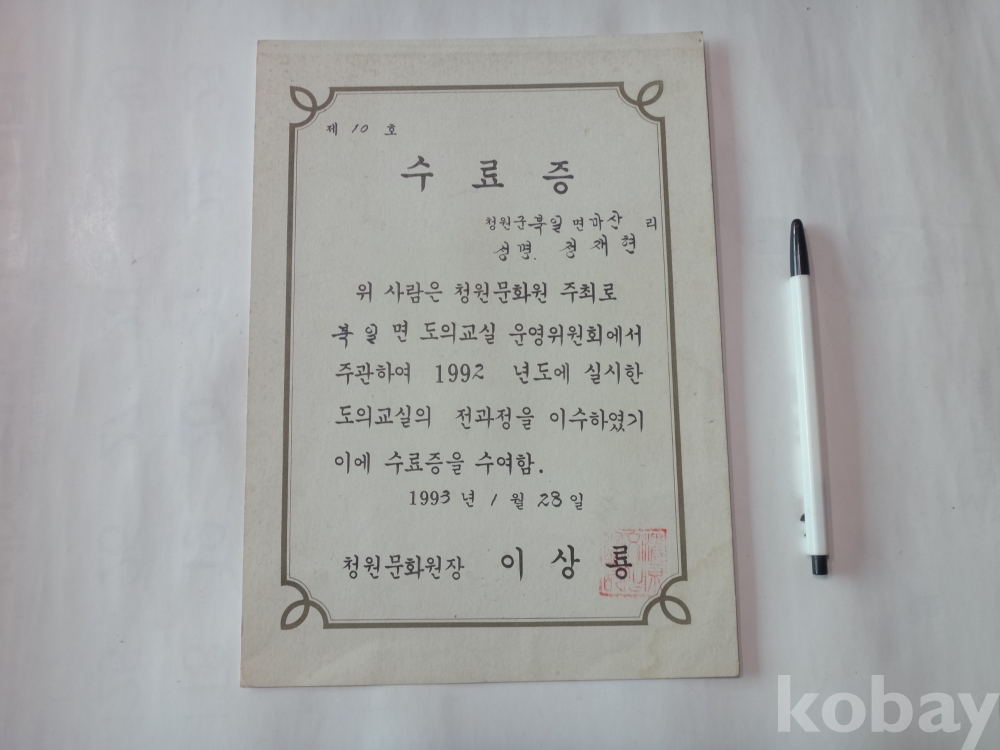 제 10 호
수 료 증
청원군 북일 면 마산 리
성명. 정재현
위 사람은 청원문화원 주최로
북일 면 도의교실 운영위원회에서
주관하여 1992 년도에 실시한
도의교실의 전과정을 이수하였기
이에 수료증을 수여함.
1993 년 1 월 28 일
청원문화원장 이 상 룡
kobay